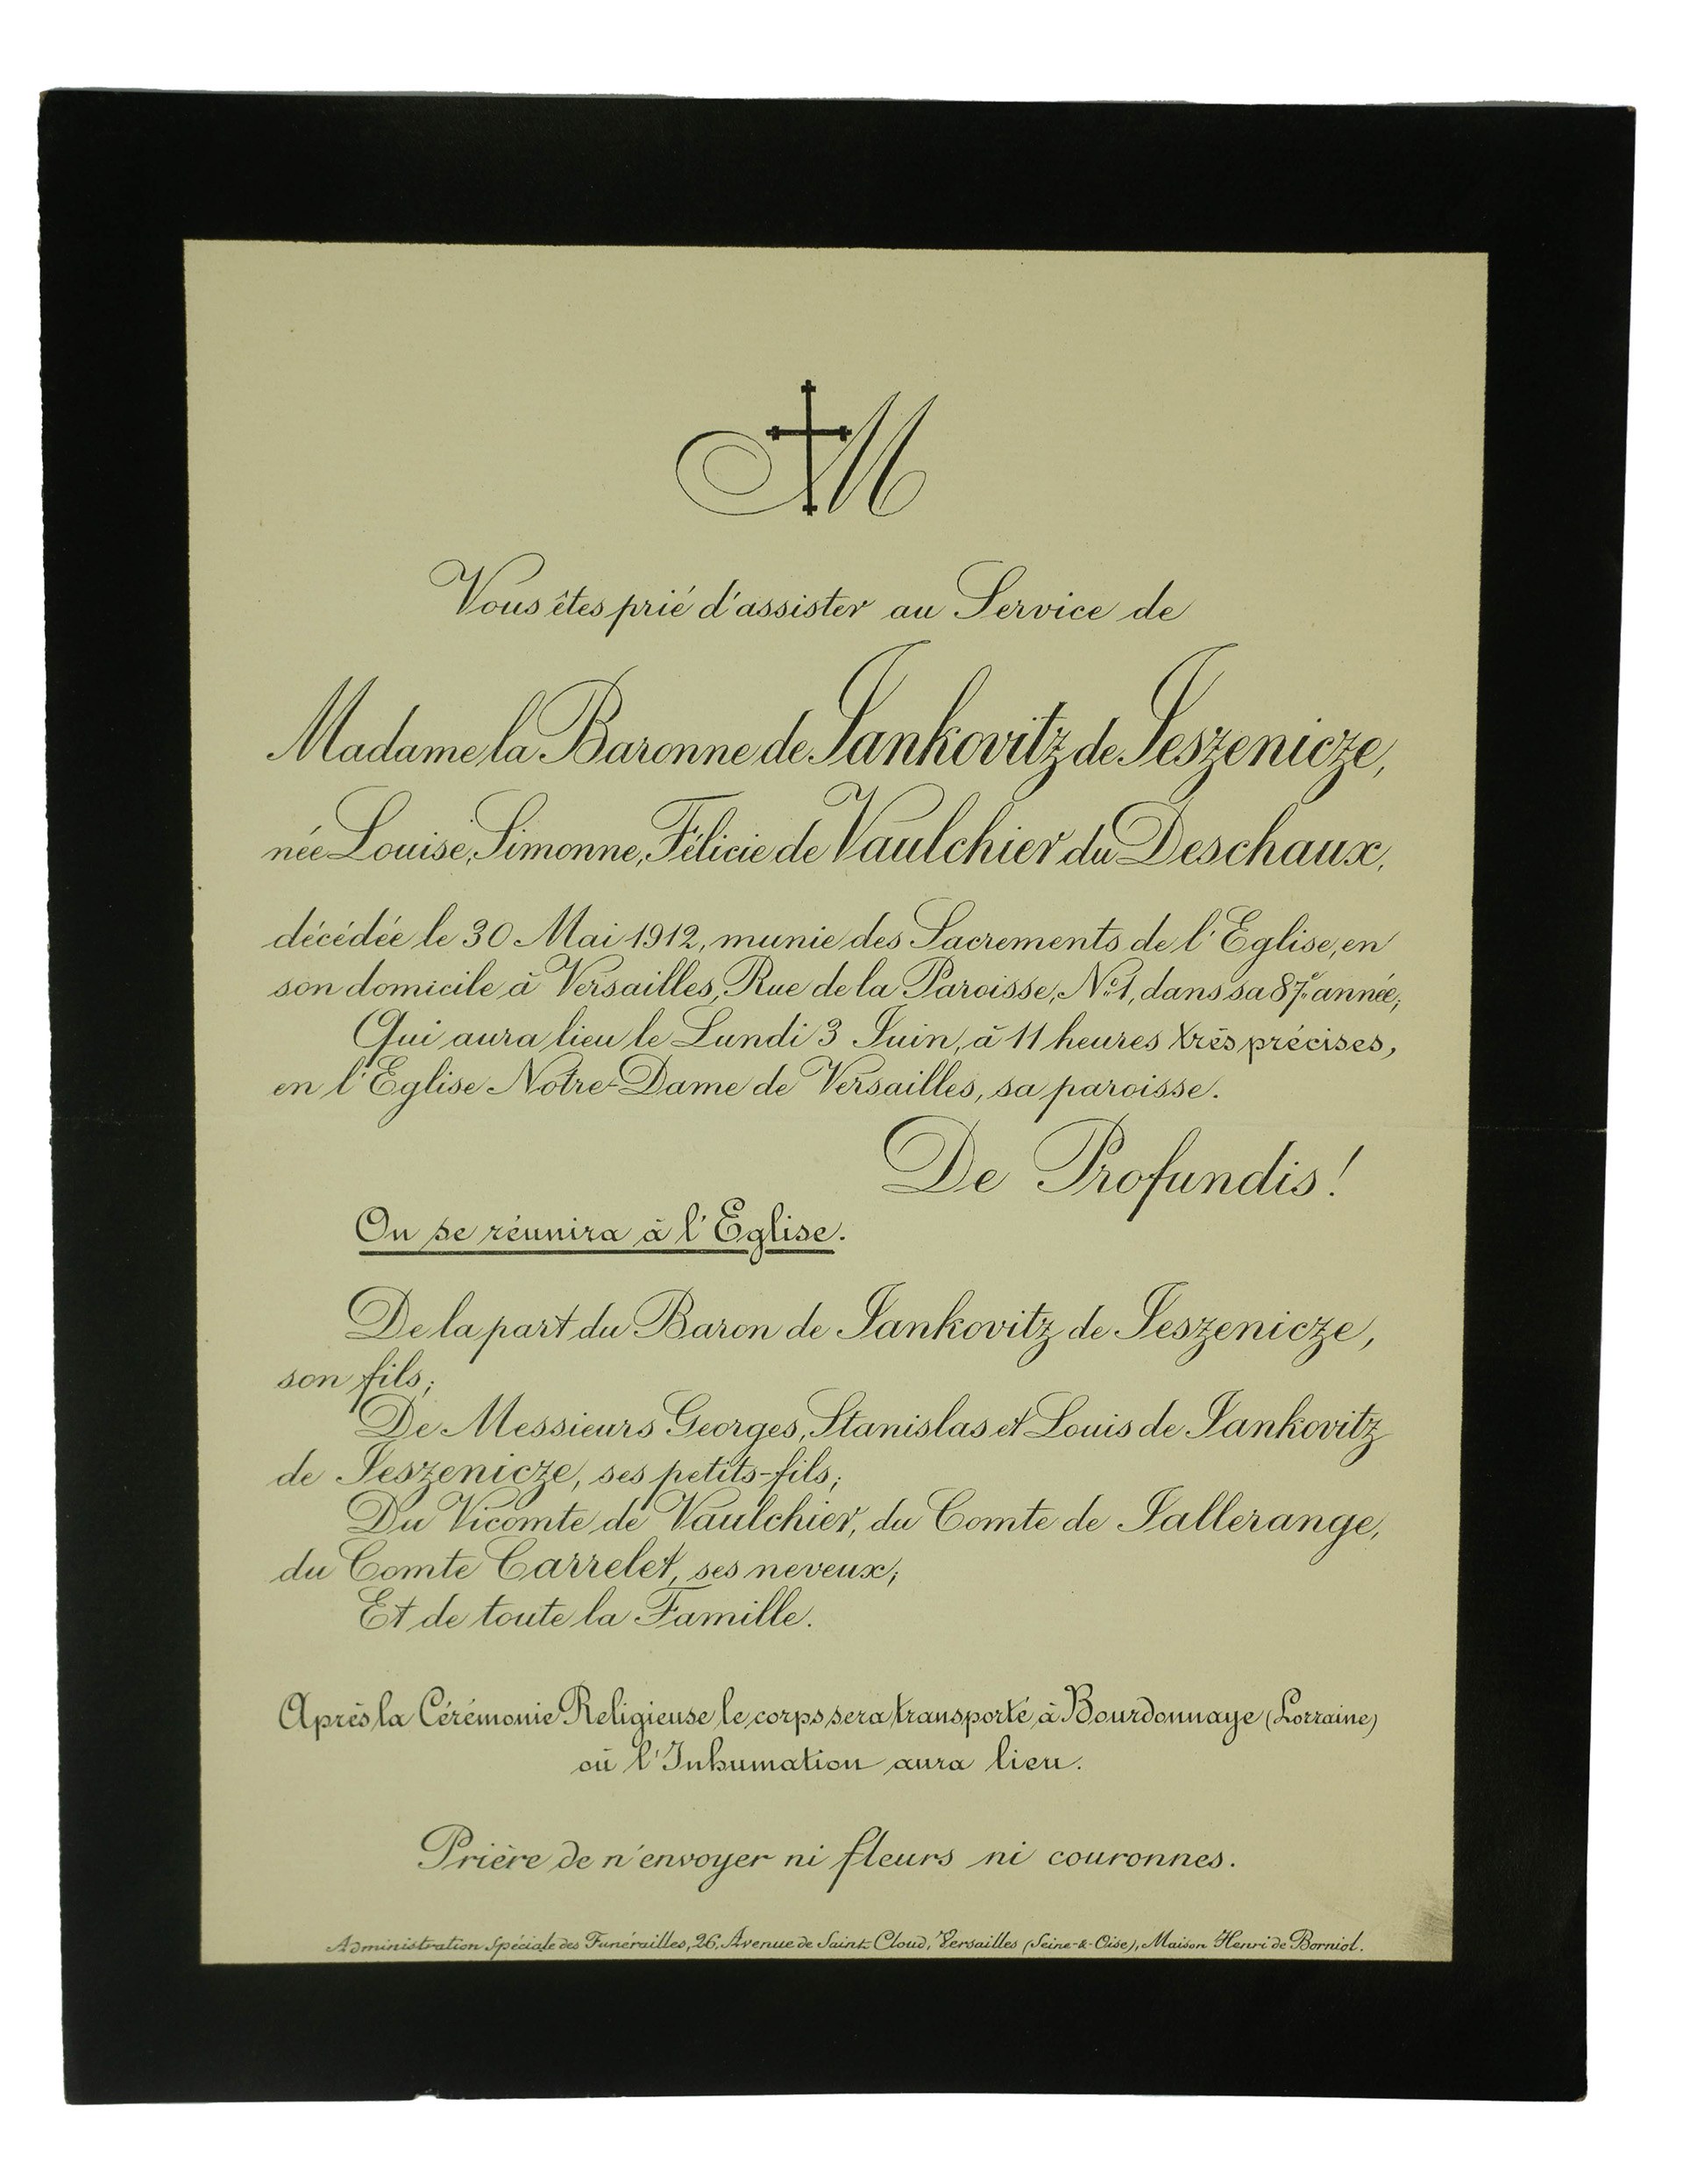 M
Vous êtes prié d'assister au Service de
Madame la Baronne de Jankovitz de Jeszenicze,
née Louise, Simonne, Félicie de Vaulchier du Deschaux,
décédée le 30 Mai 1912, munie des Sacrements de l'Eglise, en
son domicile à Versailles, Rue de la Paroisse, Nº 1, dans sa 87e année;
Qui aura lieu le Lundi 3 Juin, à 11 heures très précises,
en l'Eglise Notre-Dame de Versailles, sa paroisse.
De Profundis!
On se réunira à l'Eglise.
De la part du Baron de Jankovitz de Jeszenicze,
son fils;
De Messieurs Georges, Stanislas et Louis de Jankovitz
de Jeszenicze, ses petits-fils;
Du Vicomte de Vaulchier, du Comte de Jallerange,
du Comte Carrelet, ses neveux;
Et de toute la Famille.
Après la Cérémonie Religieuse le corps sera transporté à Bourdonnaye (Lorraine)
où l'Inhumation aura lieu.
Prière de n'envoyer ni fleurs ni couronnes.
Administration Spéciale des Funérailles, 26, Avenue de Saint-Cloud, Versailles (Seine-&-Oise), Maison Henri de Borniol.